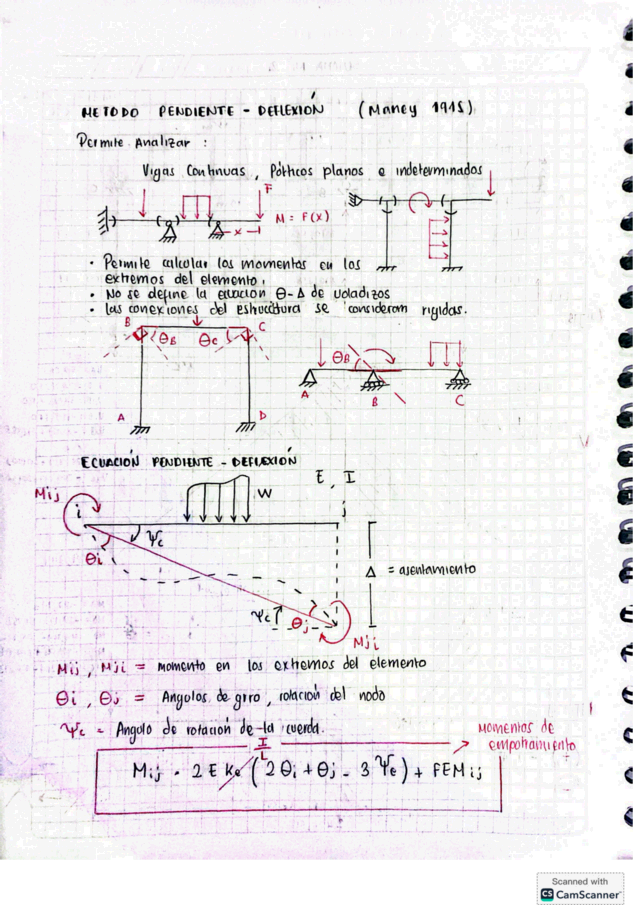 METODO PENDIENTE - DEFLEXIÓN (Maney 1915)
Permite Analizar :
Vigas Continuas, Pórticos planos e indeterminados
F
M = F(x)
x
• Permite calcular los momentos en los
extremos del elemento.
• No se define la ecuación θ-Δ de voladizos
• las conexiones del estructura se consideran rigidas.
B C
θB θc
θB
A D
A B C
ECUACIÓN PENDIENTE - DEFLEXIÓN
E, I
Mij
i
W
j
Ψc
θi
Δ = asentamiento
Ψc θj
Mji
Mij, Mji = momento en los extremos del elemento
θi, θj = Angulos de giro, rotación del nodo
Ψc = Angulo de rotación de la cuerda.
Momentos de
empotramiento
I/L
Mij = 2 E Ke (2θi + θj - 3Ψc) + FEMij
Scanned with
CS CamScanner